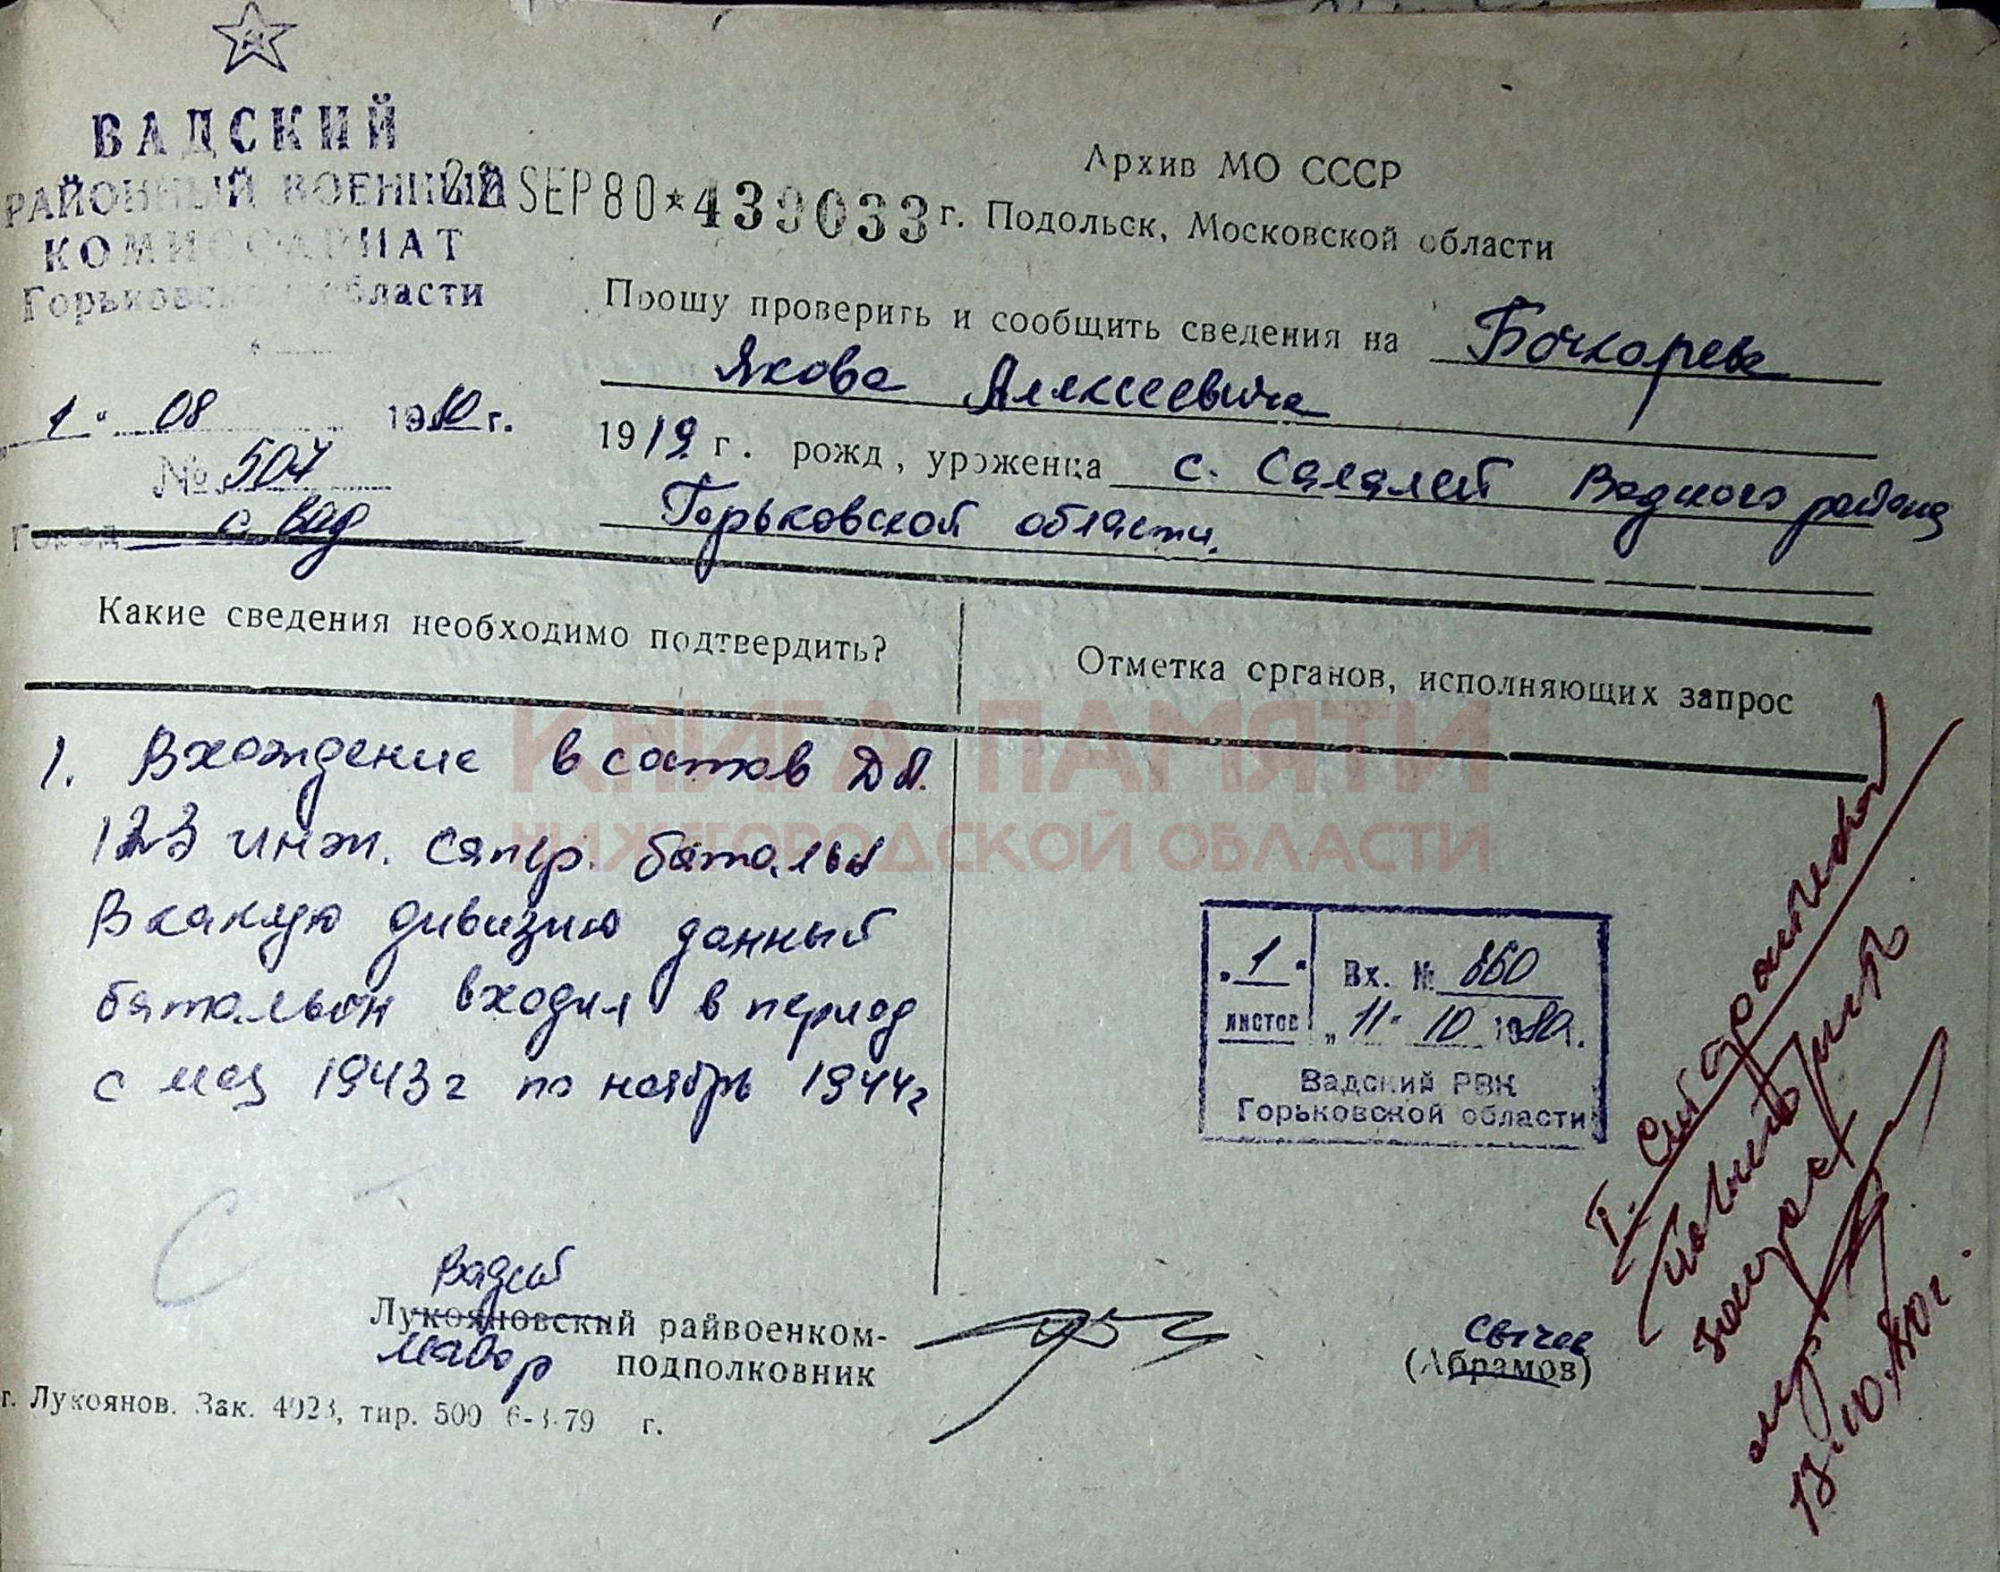 ВАДСКИЙ
РАЙОННЫЙ ВОЕННЫЙ
КОМИССАРИАТ
Горьковской области
22 SEP 80 * 439033
"1" 08 1980 г.
№ 507
город с. Вад
Архив МО СССР
г. Подольск, Московской области
Прошу проверить и сообщить сведения на Бочкарева
Якова Алексеевича
1919 г. рожд, уроженца с. Салалей Вадского района
Горьковской области.
Какие сведения необходимо подтвердить?
Отметка органов, исполняющих запрос
КНИГА ПАМЯТИ
НИЖЕГОРОДСКОЙ ОБЛАСТИ
1. Вхождение в состав ДА.
123 инж. сапер. батальон
В какую дивизию данный
батальон входил в период
с мая 1943г по ноябрь 1944г
"1" листов
Вх. № 860
"11" 10 1980г.
Вадский РВК
Горьковской области
Вадский
Лукояновский райвоенком-
майор подполковник
Сычев
(Абрамов)
г. Лукоянов. Зак. 4023, тир. 500 6-3-79 г.
Т.
запрос
13.10.80г.